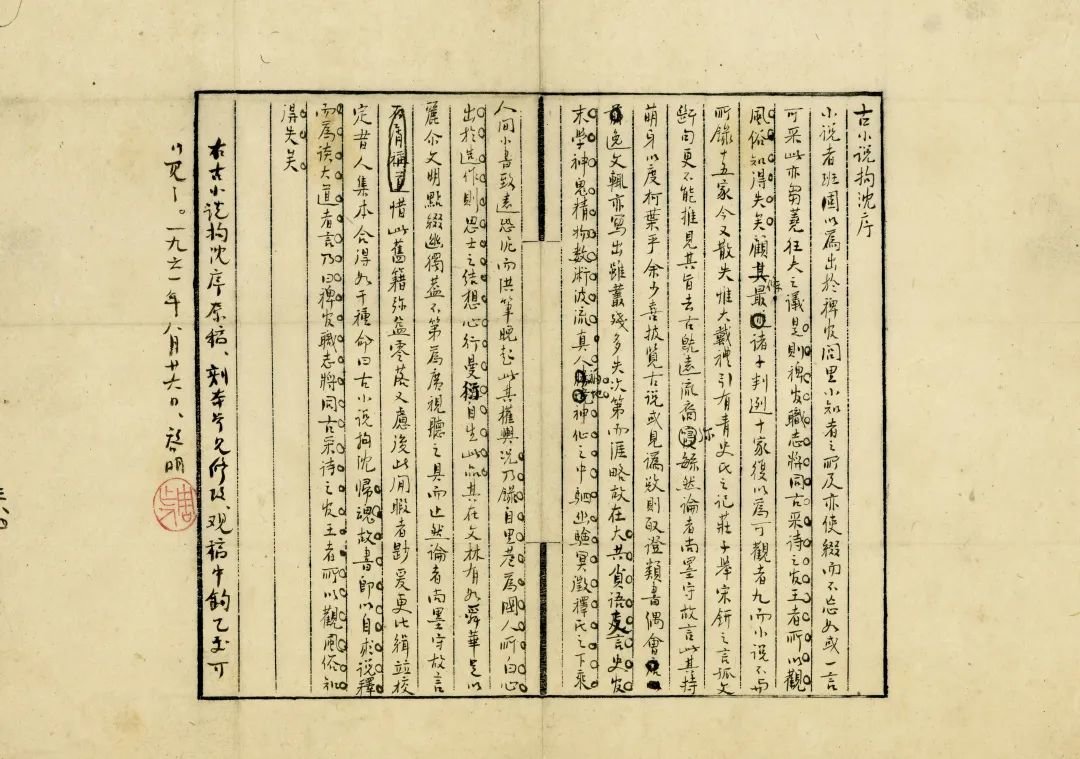 古小说拘沈序
小说者班固以為出於稗官閭里小知者之所及亦使綴而不忘如或一言
可采此亦芻蕘狂夫之議是則稗官職志將同古采诗之官王者所以觀
風俗知得失矣顧其最條諸子判列十家復以為可觀者九而小说不與
所錄十五家今又散失惟大戴禮引有青史氏之记莊子舉宋鈃之言孤文
断句更不能推見其旨去古既遠流裔弥繇然論者尚墨守故言此其持
萌芽以度柯葉乎余少喜披覽古说或見譌敚則取證類書偶會
逸文輒亦寫出雖叢殘多失次第而涯略故在大共𧴪语支言史官
末學神鬼精物數術波流真人福地神仙之中駟幽驗冥徵釋氏之下乘
人間小書致遠恐泥而洪筆晚起此其權輿况乃錄自里巷為國人所白心
出於造作則思士之结想心行曼衍自生此品其在文林有如舜華足以
麗尒文明點綴幽獨蓋不第為廣視聽之具而止然論者尚墨守故言
惜此舊籍弥益零落又慮後此閒暇者尟爰更比緝並校
定昔人集本合得如干種命曰古小说拘沈歸魂故書即以自求说釋
而為谈大道者言乃曰稗官職志將同古采诗之官王者所以觀風俗知
得失矣
右古小说拘沈序原稿、刻本修改、观稿中鈎乙处可
以见了。一九六一年八月廿六日、啓明